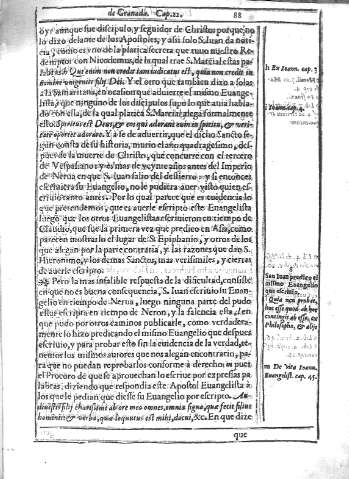 de Granada. Cap. 22. 88
oyr aunque fue discipulo, y seguidor de Christo: porque no
lo dixo delante de los Apostoles, y assi solo S. Iuan da noti-
cia, como es vno de la platica secreta que tuuo nuestro Re-
demptor con Nicodemus, de la qual trae S. Marcial estas pa
labras: Qui enim non credit iam iudicatus est, quia non credit in
nomine vnigeniti filij Dei. Y el otro que tambien dixo a solas
a la Samaritana, en ocasion que aduierte el mismo Euange-
lista, que ninguno de los discipulos supo lo que auia habla-
do con ella, de la qual platica S. Marcial alega formalmente
esto: Spiritus est Deus, & eos qui adorant eum in spiritu, & veri-
tate oportet adorare. Y a se de aduertir, que el dicho Santo se-
gun consta de su historia, murio el año quadragesimo, des-
pues de la muerte de Christo, que concurre con el tercero
de Vespasiano y es mas de
años antes del Imperio
de Nerua en que S. Iuan salio del destierro, y si entonces
escriuiera su Euangelio, no le pudiera auer visto quien es-
criuio tanto antes. Por lo qual parece que es euidencia lo
que pretendemos, que es auerle escripto este Euangelista
luego que los otros Euangelistas escriuieron en tiempo de
Claudio, que fue la primera vez que predico en Asia, como
parecen mostrarlo el lugar de S. Epiphanio, y otros de los
que alegan por la parte contraria, y las razones que dan S.
Hieronymo, y los demas Santos, mas verisimiles, y ciertas
de auerle escripto.
Pero la mas infalible respuesta de la dificultad, consiste
en que no es buena consequencia, S. Iuan escriuio su Euan-
gelio en tiempo de Nerua, luego ninguna parte del pudo
estar escripta en tiempo de Neron, y la falencia esta, en
que pudo por otros caminos publicarle, como verdadera-
mente lo hizo predicando el mismo Euangelio que despues
escriuio, y para probar esto sin la euidencia de la verdad, te-
nemos los mismos autores que nos alegan en contrario, pa-
ra que no puedan reprobarlos conforme a derecho, pues
el Procoro de que se aprouechan lo escriue por expresas pa
labras, diziendo que respondia este Apostol Euangelista a
los que le pedian que diesse su Euangelio por escripto. Au-
distis filij charissimi ab ore meo omnes, omnia signa, que fecit filius
hominis & verba, quæ loquutus est mihi, dicens, &c. En que dize
que
h Ex Ioann. cap. 3
i Ioann. cap. 4.
San Iuan predico el
mismo Euangelio
que escriuio.
Quia non probat,
hoc esse quod ab hoc
contingit
Philosopho, & alijs
m De vita Ioann.
Euangelist. cap. 45.